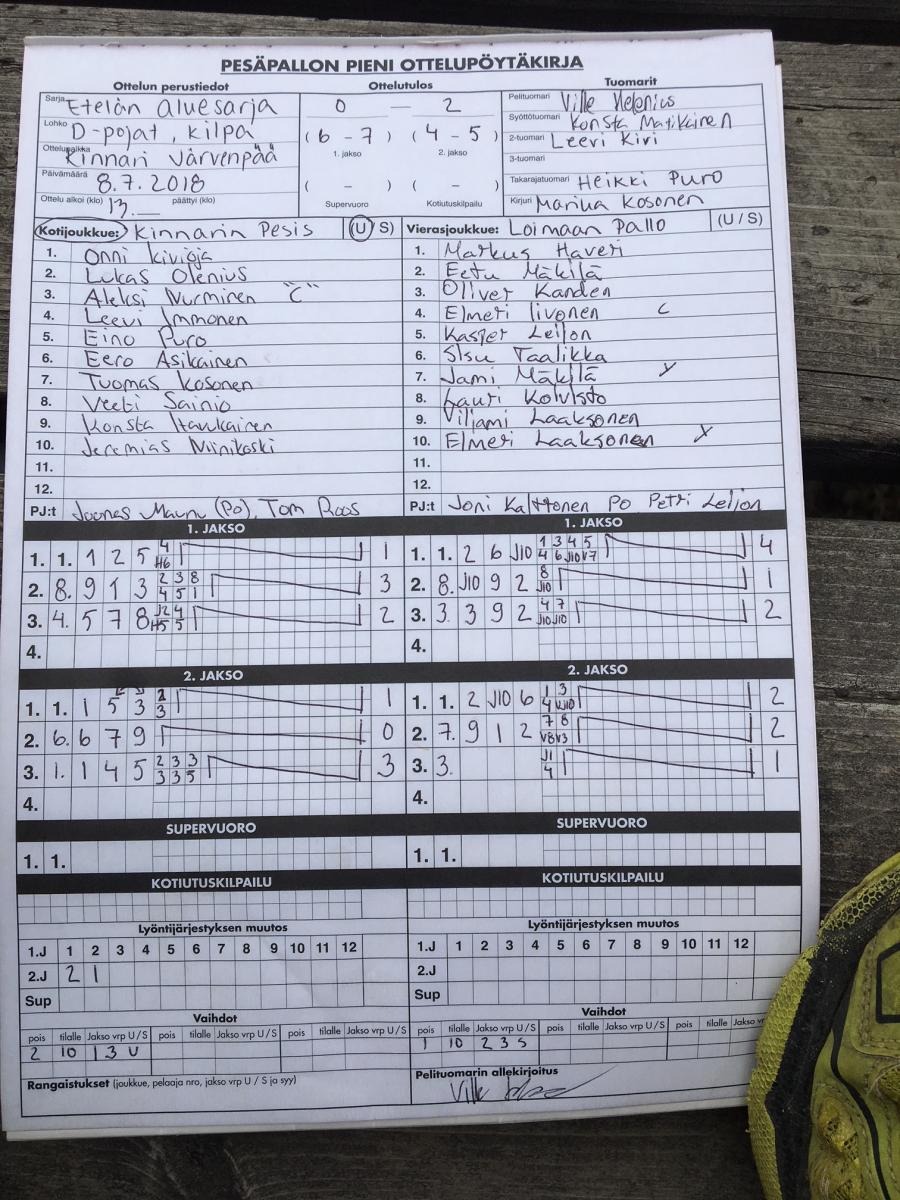 PESÄPALLON PIENI OTTELUPÖYTÄKIRJA
Ottelun perustiedot Ottelutulos Tuomarit
Sarja Etelän aluesarja
Lohko D-pojat, kilpa
Ottelupaikka Kinnari Järvenpää
Päivämäärä 8.7.2018
Ottelu alkoi (klo) 13.__ päättyi (klo)
0 — 2
( 6 - 7 ) ( 4 - 5 )
1. jakso 2. jakso
( - ) ( - )
Supervuoro Kotiutuskilpailu
Pelituomari Ville Helenius
Syöttötuomari Konsta Matikainen
2-tuomari Leevi Kivi
3-tuomari
Takarajatuomari Heikki Puro
Kirjuri Marika Kosonen
Kotijoukkue: Kinnarin Pesis (U/S)
1. Onni Kivioja
2. Lukas Olenius
3. Aleksi Nurminen "C"
4. Leevi Immonen
5. Eino Puro
6. Eero Asikainen
7. Tuomas Kosonen
8. Veeti Sainio
9. Konsta Haukainen
10. Jeremias Niinikoski
11.
12.
PJ:t Joones (Po), Tom Roos
Vierasjoukkue: Loimaan Pallo (U/S)
1. Markus Haveri
2. Eetu Mäkilä
3. Oliver Kanden
4. Elmeri Iivonen C
5. Kasper Leijon
6. Sisu Taalikka
7. Jami Mäkilä
8. Lauri Koivisto
9. Viljami Laaksonen
10. Elmeri Laaksonen
11.
12.
PJ:t Joni Kalttonen Po Petri Leijon
1. JAKSO
1. 1. 1 2 5 4 H6 1
2. 8. 9 1 3 2 3 8 4 5 1 3
3. 4. 5 7 8 2
4.
1. JAKSO
1. 1. 2 6 J10 1 3 4 5 4 6 J10 V7 4
2. 8. J10 9 2 8 J10 1
3. 3. 3 9 2 4 7 J10 J10 2
4.
2. JAKSO
1. 1. 1 5 3 2 3 1
2. 6. 6 7 9 0
3. 1. 1 4 5 2 3 3 3 3 5 3
4.
2. JAKSO
1. 1. 2 J10 6 1 3 4 2
2. 7. 9 1 2 7 8 V8 V3 2
3. 3. J1 4 1
4.
SUPERVUORO
1. 1.
SUPERVUORO
1. 1.
KOTIUTUSKILPAILU
KOTIUTUSKILPAILU
Lyöntijärjestyksen muutos
1.J 1 2 3 4 5 6 7 8 9 10 11 12
2.J 2 1
Sup
Lyöntijärjestyksen muutos
1.J 1 2 3 4 5 6 7 8 9 10 11 12
2.J
Sup
Vaihdot
pois tilalle Jakso vrp U/S pois tilalle Jakso vrp U/S pois tilalle Jakso vrp U/S
2 10 1 3 U
Vaihdot
pois tilalle Jakso vrp U/S pois tilalle Jakso vrp U/S pois tilalle Jakso vrp
1 10 2 3 S
Rangaistukset (joukkue, pelaaja nro, jakso vrp U / S ja syy)
Pelituomarin allekirjoitus
Ville